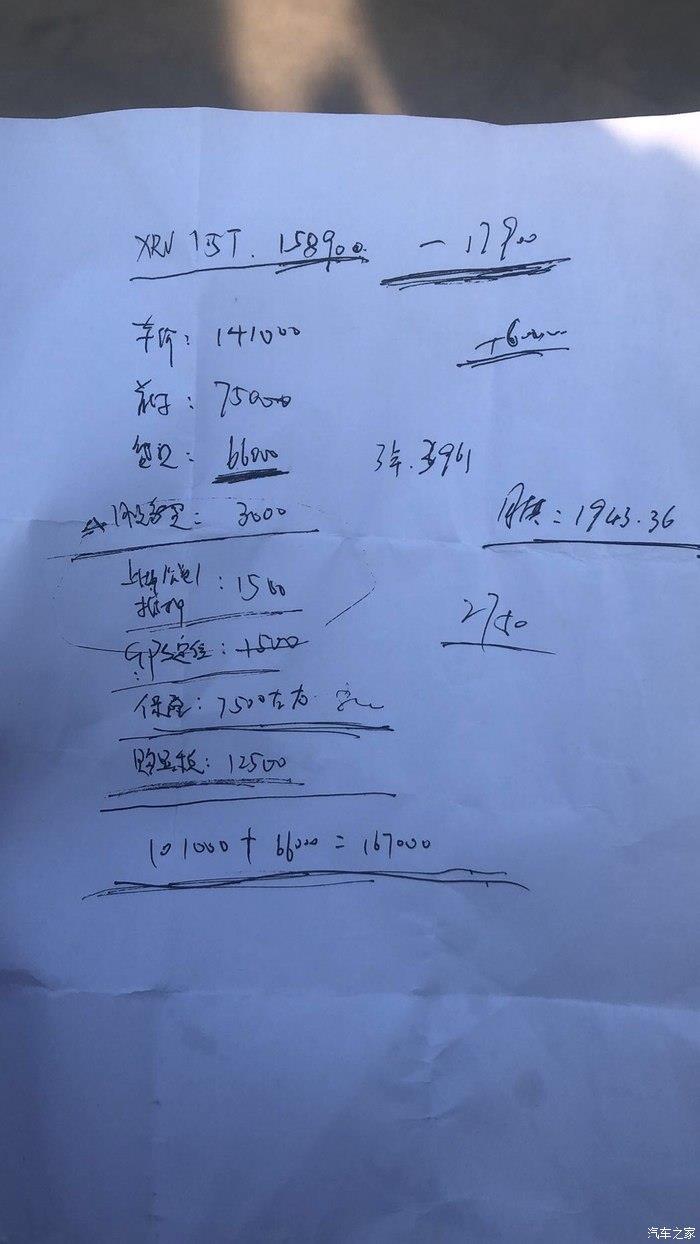 XRV 15T. 158900. - 17900
车价: 141000 +6000
首付: 75000
贷款: 66000 3年. 3961
: 3000 月供: 1943.36
上牌 : 1500
2750
GPS定位: 1500
保险: 7500左右
购置税: 12500
101000 + 66000 = 167000
汽车之家